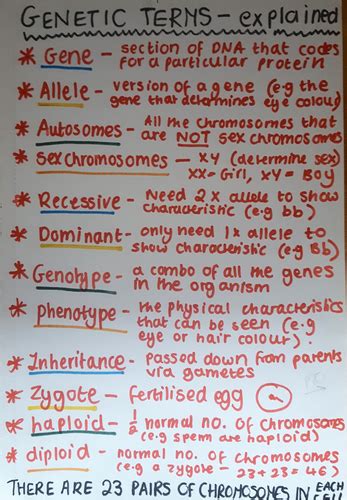 GENETIC TERMS - explained
* Gene - section of DNA that codes
for a particular protein
* Allele - version of a gene (e.g the
gene that determines eye colour)
* Autosomes - All the chromosomes that
are NOT sex chromosomes
* Sex chromosomes - XY (determine sex)
XX = Girl, XY = Boy
* Recessive - Need 2x allele to show
characteristic (e.g bb)
* Dominant - only need 1x allele to
show characteristic (eg Bb)
* Genotype - a combo of all the genes
in the organism
* phenotype - the physical characteristics
that can be seen (e.g
eye or hair colour)
* Inheritance - passed down from parents
via gametes
* Zygote - fertilised egg
* haploid - 1/2 normal no. of chromosomes
(e.g sperm are haploid)
* diploid - normal no. of chromosomes
(e.g a zygote - 23+23=46)
THERE ARE 23 PAIRS OF CHROMOSOMES IN EACH